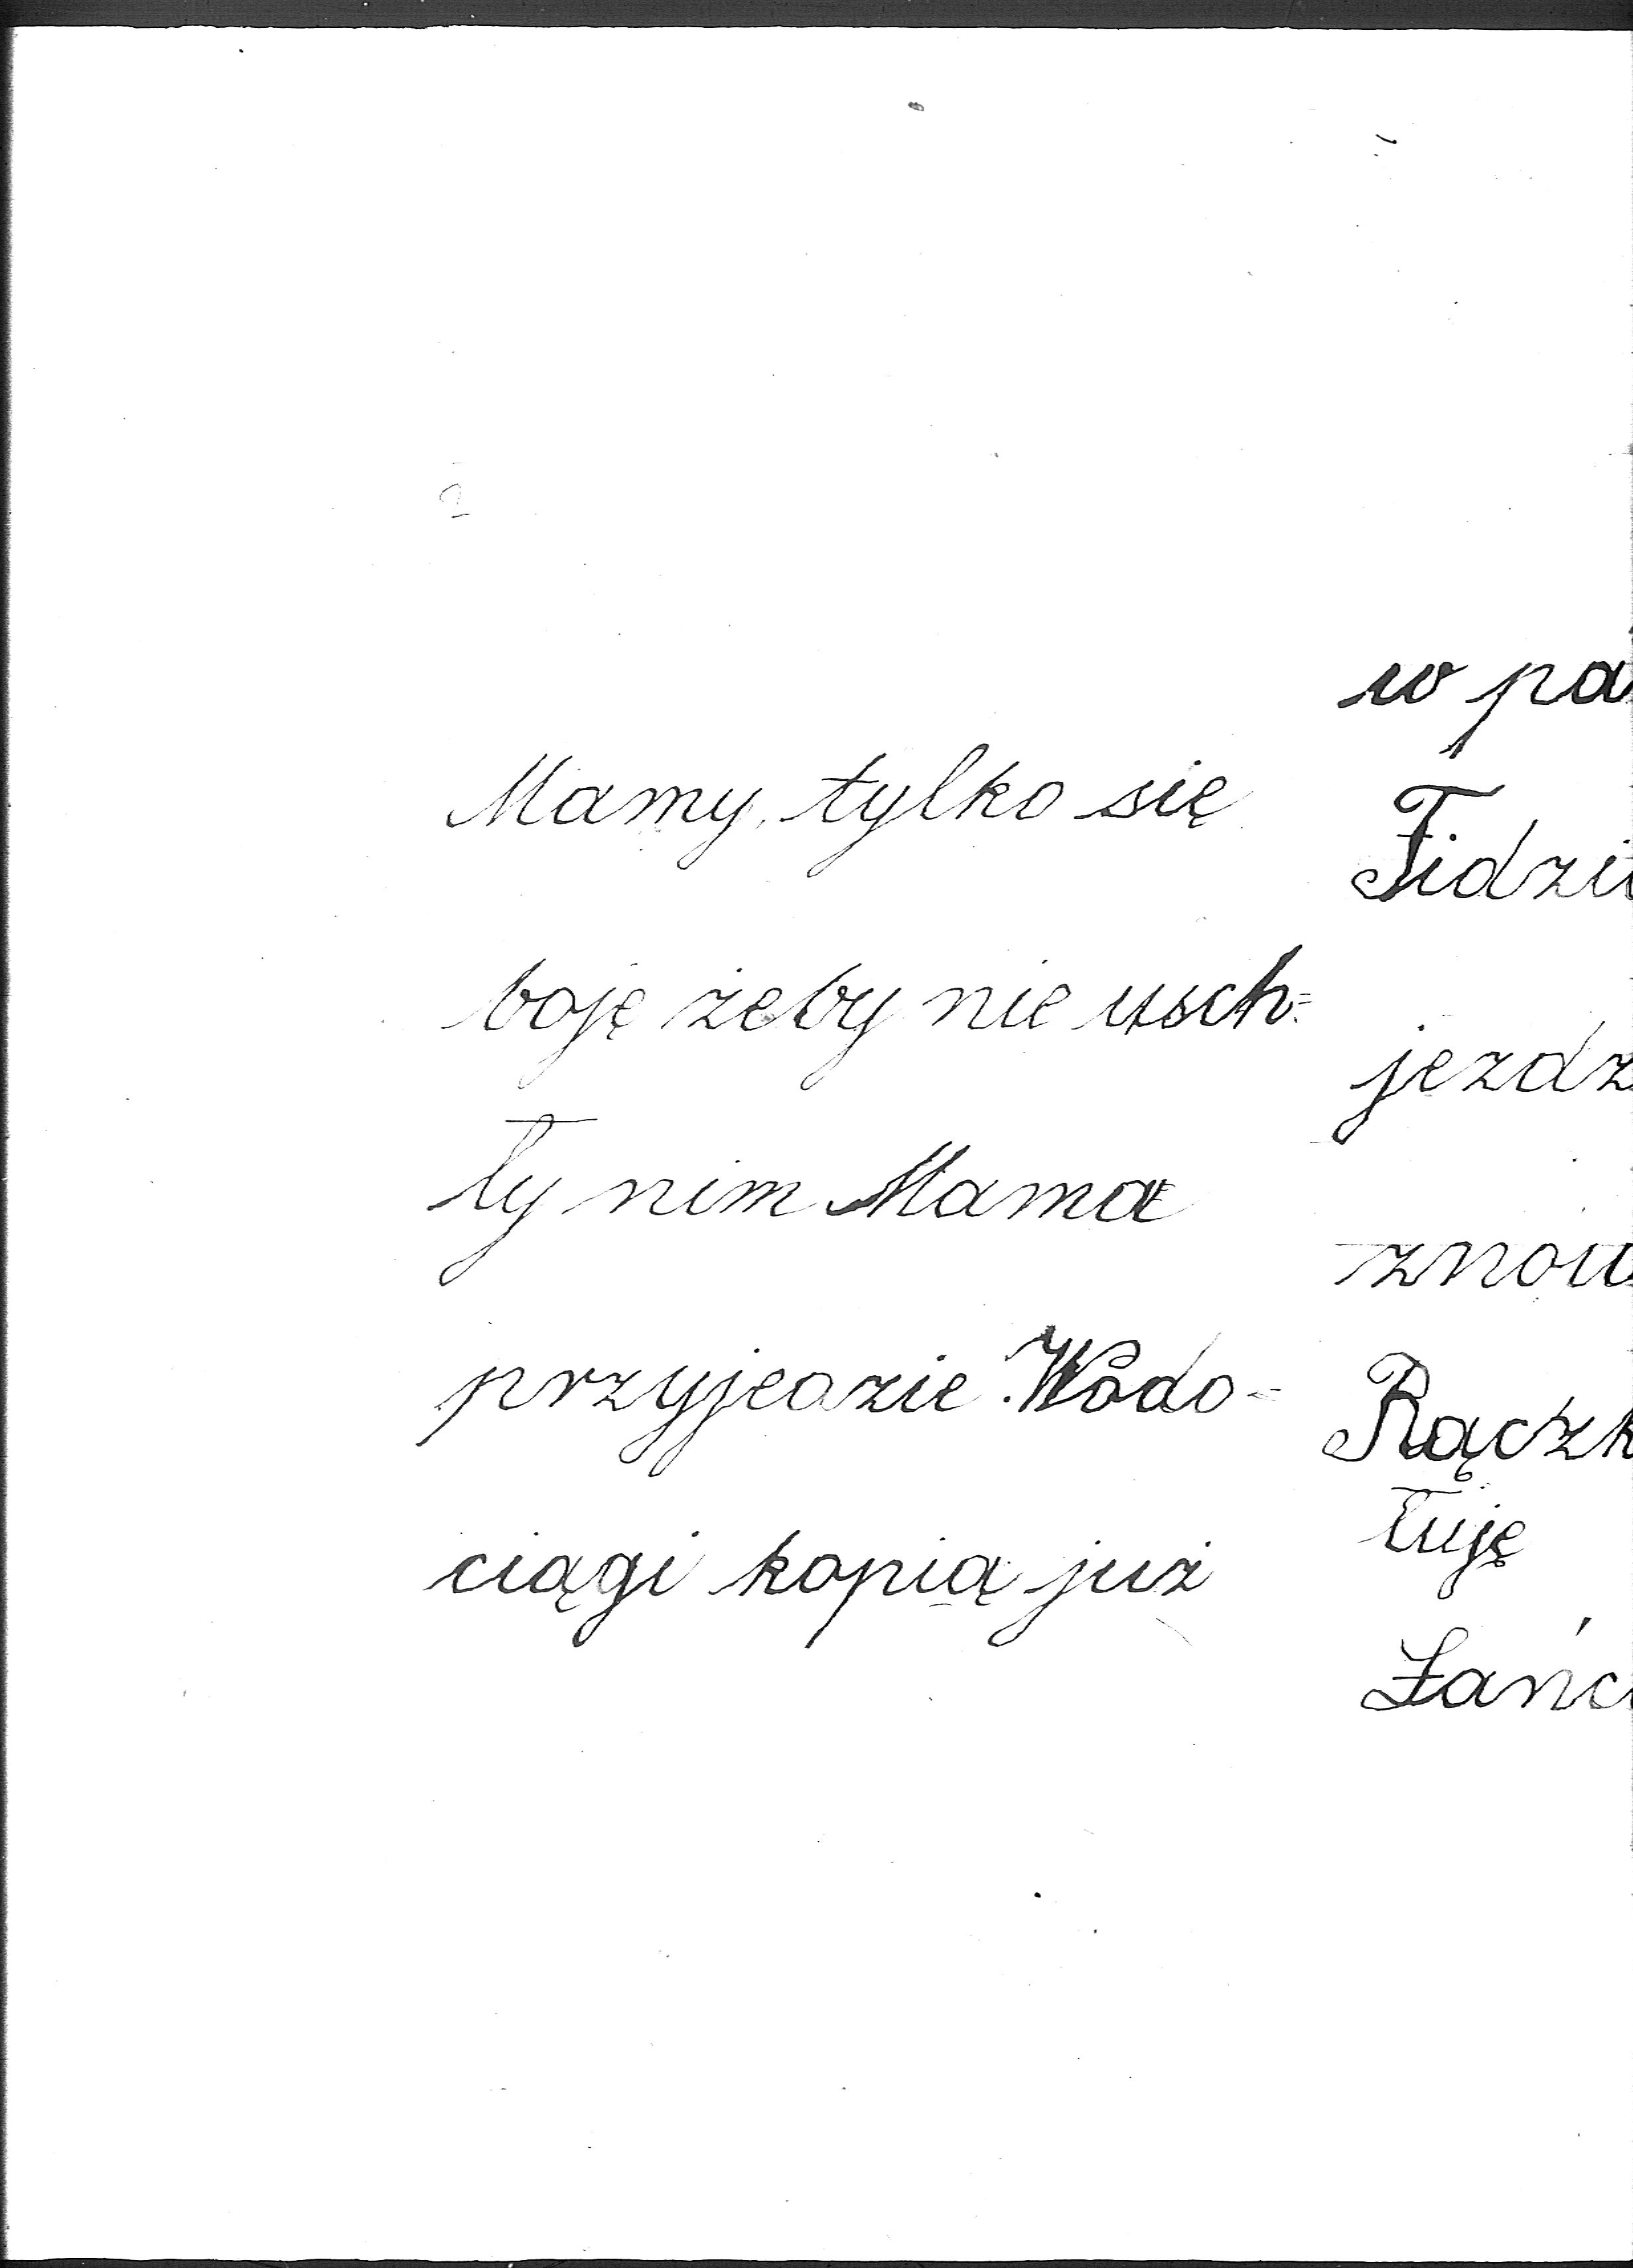 Mamy, tylko się
boję żeby nie usch=
ły nim Mama
przyjedzie. Wodo-
ciągi kopią już
w pa
Fidzi
jezdz
znow
Rączk
łuję
Łańc